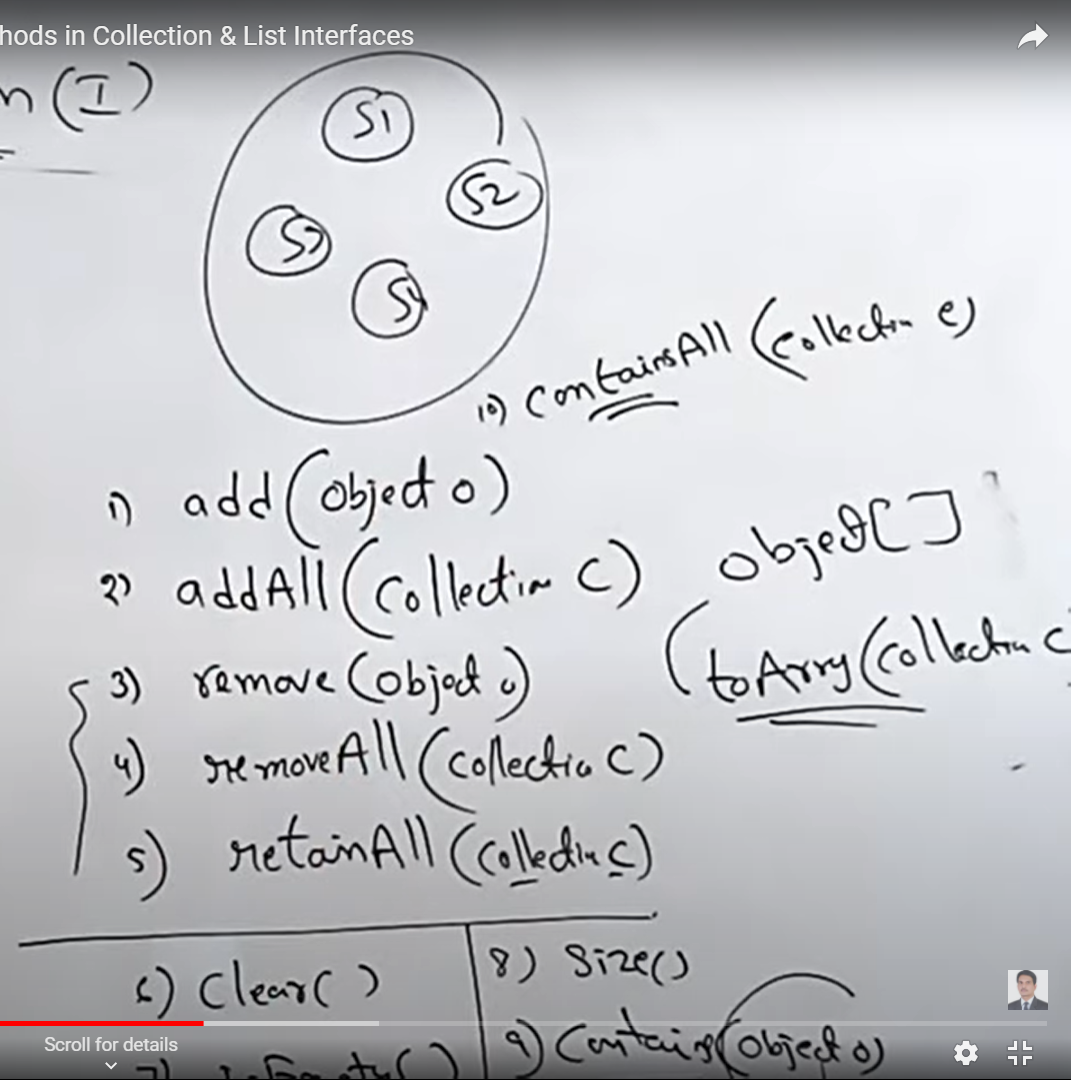 hods in Collection & List Interfaces
n (I)
S1
S2
S3
S4
10) containsAll (collection c)
1) add (object o)
2) addAll (collection c)
object []
3) remove (object o)
(toArry (collection c)
4) removeAll (collection c)
5) retainAll (collection c)
6) clear ( )
8) size()
9) contains (object o)
Scroll for details
7) isEmpty ( )